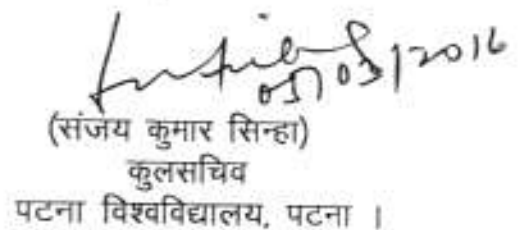 05/03/2016
(संजय कुमार सिन्हा)
कुलसचिव
पटना विश्वविद्यालय, पटना ।